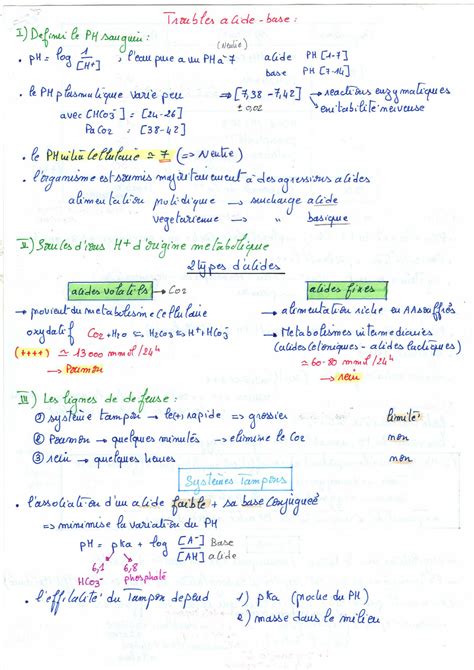 Troubles acide-base :
I) Definir le PH sanguin :
. pH = log 1/[H+] , l'eau pure a un PH à 7 (Neutre) acide PH [1-7[
base PH ]7-14]
. le PH plasmatique varie peu → [7,38 - 7,42] → reactions enzymatiques
± 0,02 → excitabilité nerveuse
avec CHCO3⁻ = [24-26]
PaCO2 = [38-42]
. le PH intra Cellulaire ≃ 7 (=> Neutre)
. l'organisme est soumis majoritairement à des agressions acides
alimentation protidique → surcharge acide
vegetarienne → " basique
II) Sources d'ions H+ d'origine metabolique
2 types d'acides
acides volatils → CO2
acides fixes
→ provient du metabolisme Cellulaire
oxydatif CO2 + H2O ⇆ H2CO3 ⇆ H+ HCO3⁻
(++++) ≃ 13 000 mmol/24h
→ Poumon
→ alimentation riche en AA souffrés
→ Metabolismes intermediaires
(acides cetoniques - acides lactiques)
≃ 60-80 mmol/24h
→ rein
III) Les lignes de defense :
① système tampon → le(+) rapide => grossier limité
② Poumon → quelques minutes → elimine le CO2 non
③ rein → quelques heures non
Systèmes Tampons
. l'association d'un acide faible + sa base Conjuguée
=> minimise la variation du PH
pH = pka + log [A-] Base
[AH] acide
6,1 6,8
HCO3⁻ phosphate
. l'efficacité du Tampon depend 1) pka (proche du PH)
2) masse dans le milieu